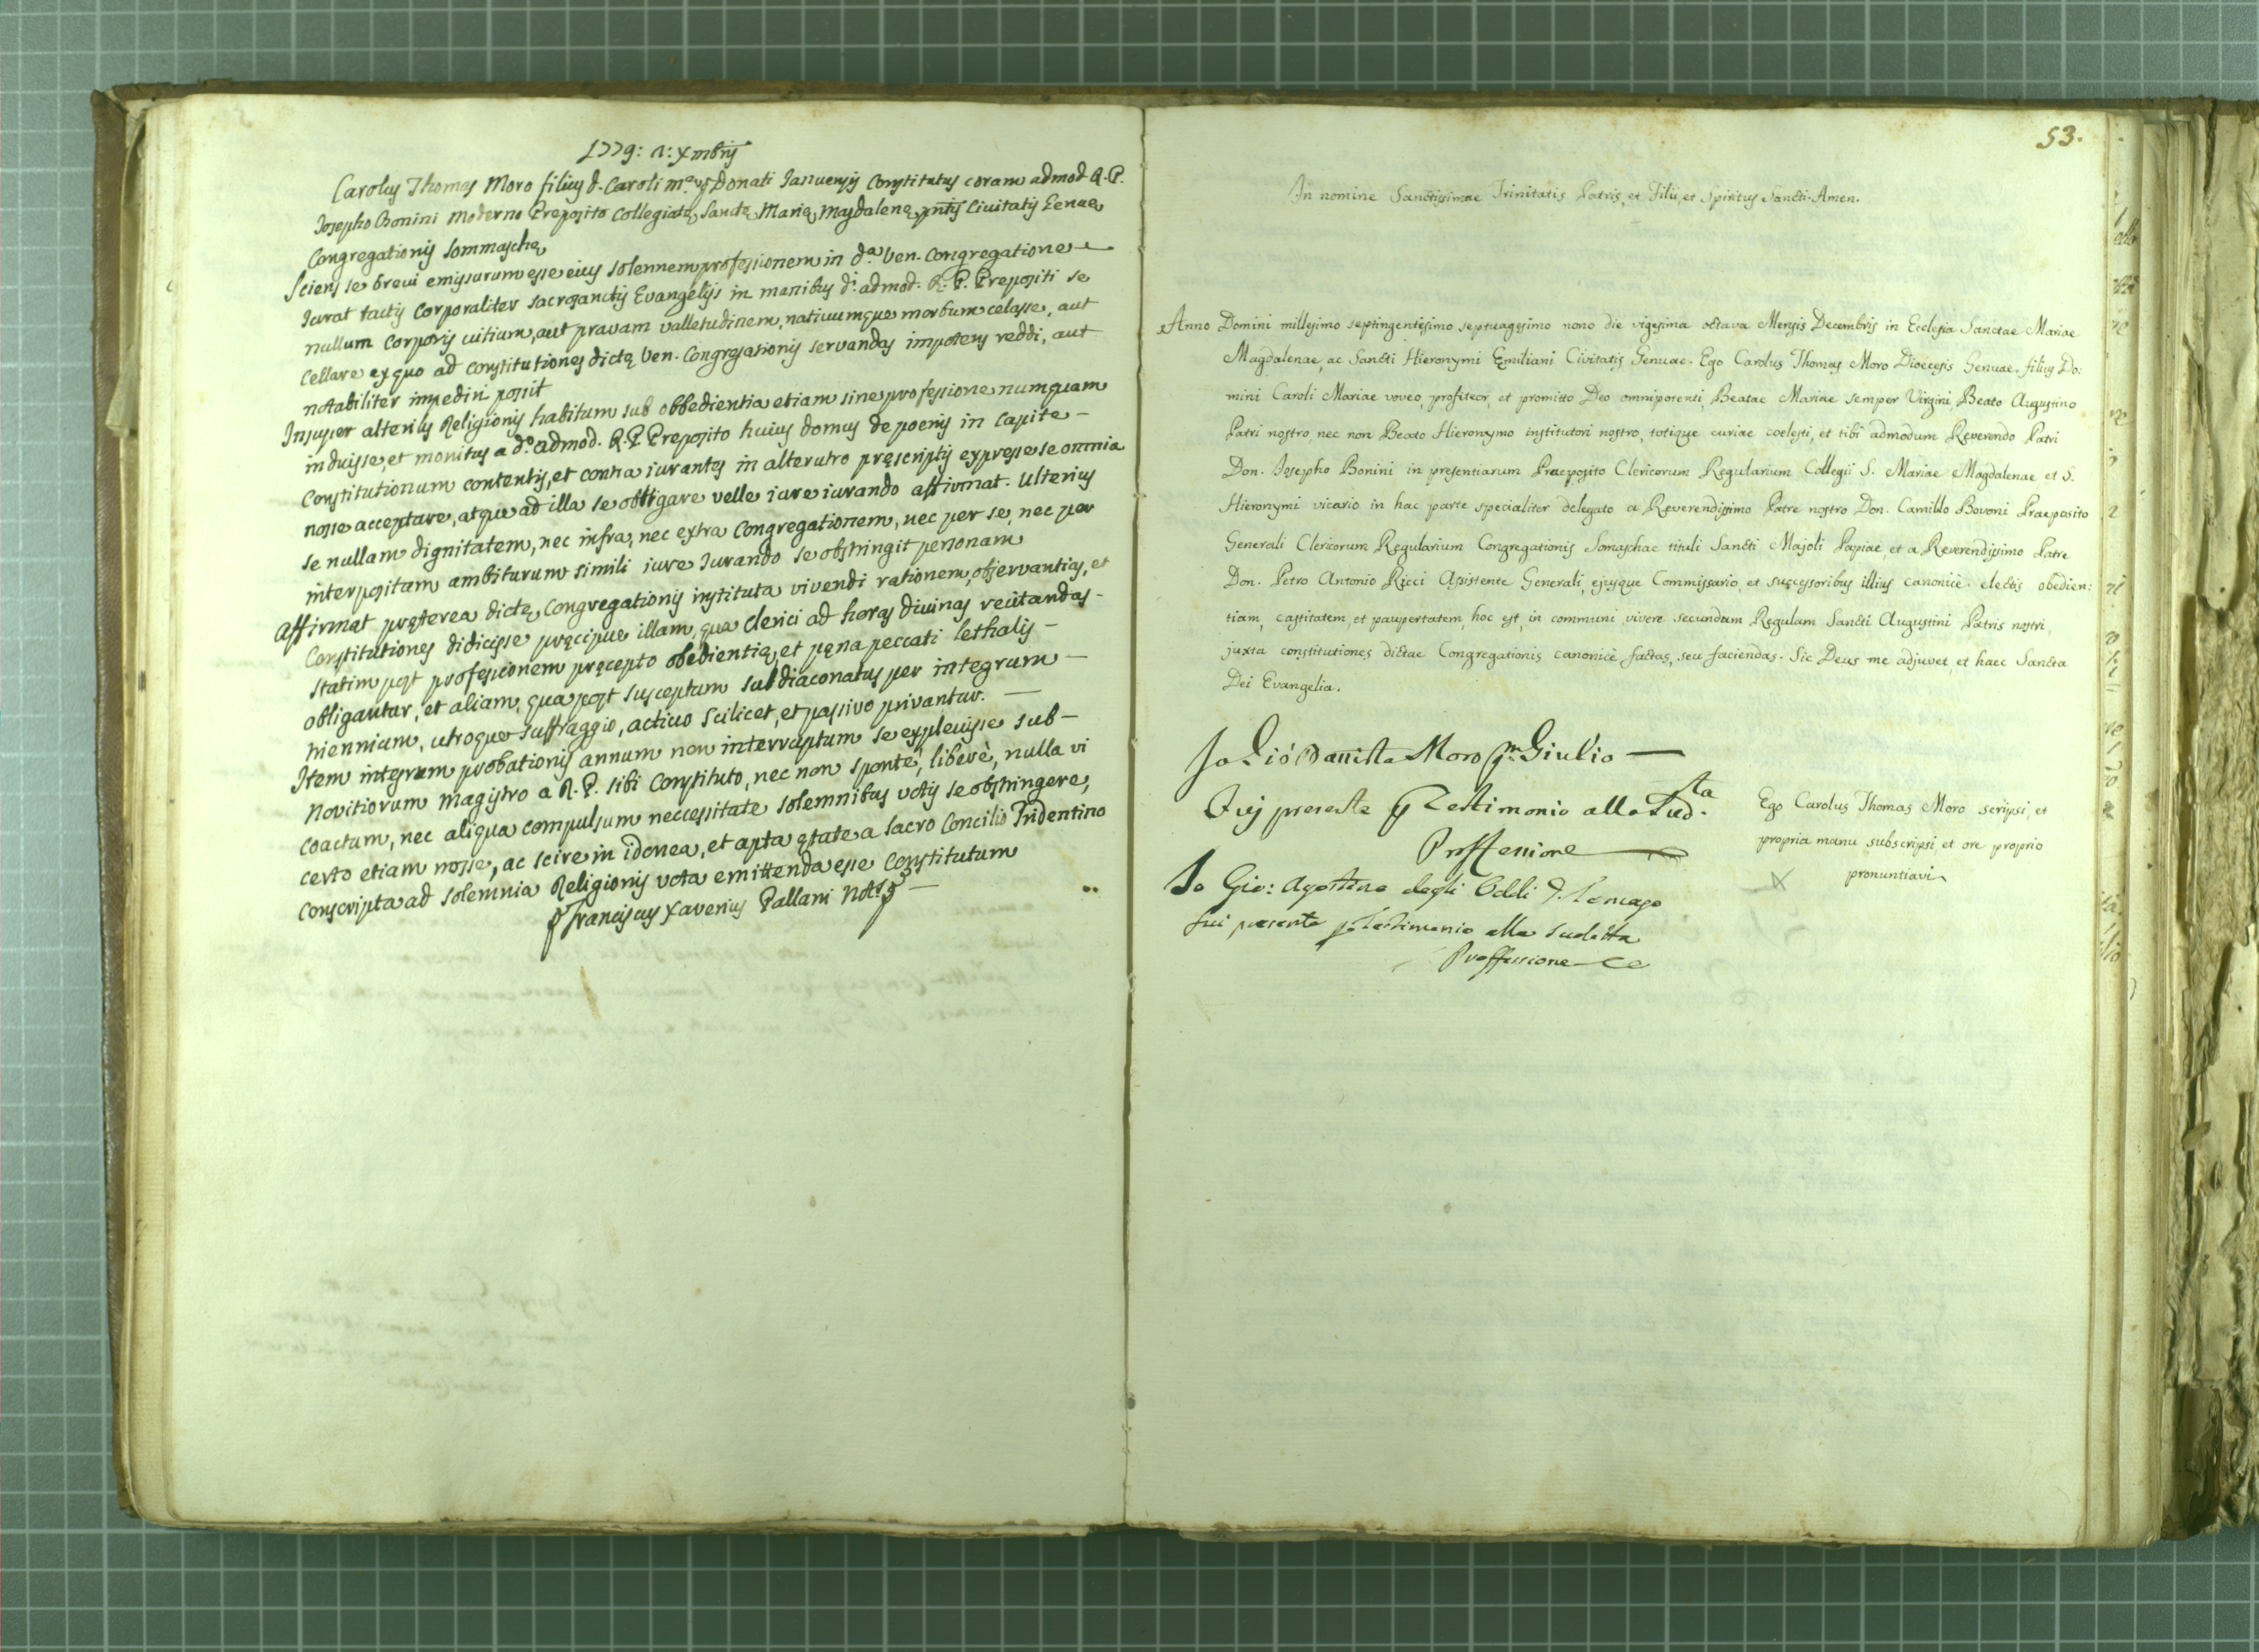 1779: 2: Xmbris
Carolus Thomas Moro filius d. Caroli Mae qm Donati Januensis Constitutus coram admod. R. P.
Josepho Bonini Moderno Preposito Collegiatę Sanctę Marię Magdalenę pntis Civitatis Genuę
Congregationis Sommaschę
Sciens se brevi emissurum esse eius solennem professionem in da. Ven. Congregatione
Jurat tactis Corporaliter sacrosanctis Evangelijs in manibus di. admod. R. P. Prepositi se
nullum Corporis vitium, aut pravam valletudinem, nativumque morbum celasse, aut
Cellare ex quo ad constitutiones dictę Ven. Congregationis servandas impotens reddi, aut
notabiliter impediri possit
Insuper alterius Religionis habitum sub obbedientia etiam sine professione numquam
induisse, et monitus a do. admod. R. P. Preposito huius domus de poenis in Capite -
Constitutionum contentis, et contra iurantes in alterutro pręscriptis expresse se omnia
nosse acceptare, atque ad illa se obligare velle iure iurando affirmat. Ulterius
se nullam dignitatem, nec infra, nec extra Congregationem, nec per se, nec per
interpositam ambiturum simili iure Jurando se obstringit personam
Affirmat pręterea dictę Congregationis instituta vivendi rationem, observantias, et
Constitutiones didicisse pręcipue illam, qua Clerici ad horas divinas recitandas -
statim post professionem pręcepto obedientię, et pęna peccati lethalis -
obligantur, et aliam, qua post susceptum subdiaconatus per integrum -
triennium, utroque suffraggio, activo scilicet, et passivo privantur. -
Item integrum probationis annum non interruptum se explevisse sub -
Novitiorum Magistro a R. P. sibi Constituto, nec non sponte, liberè, nulla vi
coactum, nec aliqua compulsum neccessitate solemnibus votis se obstringere,
certo etiam nosse, ac scire in idonea, et apta ętate a Sacro Concilio Tridentino
conscripta ad solemnia Religionis vota emittenda esse Constitutum
Franciscus Xaverius Pallani Nots
53.
In nomine Sanctissimae Trinitatis Patris, et Filii, et Spiritus Sancti. Amen.
Anno Domini millesimo septingentesimo septuagesimo nono die vigesima octava Mensis Decembris in Ecclesia Sanctae Mariae
Magdalenae, ac Sancti Hieronymi Emiliani Civitatis Genuae. Ego Carolus Thomas Moro Dioecesis Genuae, filius Do:
mini Caroli Mariae voveo, profiteor, et promitto Deo omnipotenti, Beatae Mariae semper Virgini, Beato Augustino
Patri nostro, nec non Beato Hieronymo institutori nostro, totique curiae coelesti, et tibi admodum Reverendo Patri
Don. Josepho Bonini in presentiarum Praeposito Clericorum Regularium Collegii S. Mariae Magdalenae et S.
Hieronymi vicario in hac parte specialiter delegato a Reverendissimo Patre nostro Don. Camillo Bovoni Praeposito
Generali Clericorum Regularium Congregationis Somaschae tituli Sancti Majoli Papiae et a Reverendissimo Patre
Don. Petro Antonio Ricci Assistente Generali, ejusque Commissario, et successoribus illius canonicè electis obedien:
tiam, castitatem, et paupertatem, hoc est, in communi vivere secundum Regulam Sancti Augustini Patris nostri,
juxta constitutiones dictae Congregationis canonicè factas, seu faciendas. Sic Deus me adjuvet, et haec Sancta
Dei Evangelia.
Io Gio Batista Moro qm Giulio
Fuij presente p Testimonio alla Sudta.
Proffessione
Ego Carolus Thomas Moro scripsi, et
propria manu subscripsi, et ore proprio
pronuntiavi
Io Gio: Agostino degli Oddi
fui presente p Testimonio alla sudetta
Proffessione